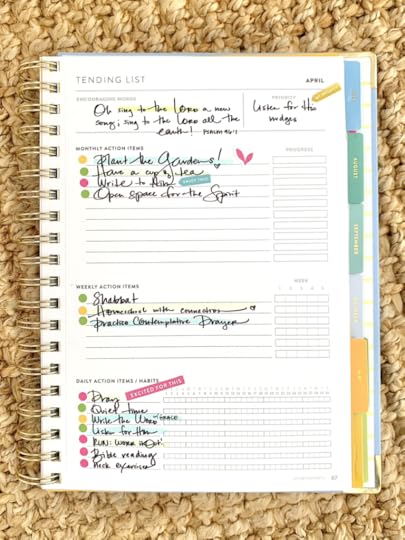 TENDING LIST
APRIL
ENCOURAGING WORDS
Oh sing to the LORD a new
song; sing to the LORD all the
earth! PSALM 96:1
PRIORITY
Listen for His
nudges
MONTHLY ACTION ITEMS
PROGRESS
Plant the Gardens!
Have a cup of tea
Write to Him
Open space for the Spirit
WEEKLY ACTION ITEMS
WEEK
1 2 3 4 5
Shabbat
Homeschool with connection
Practice Contemplative Prayer
DAILY ACTION ITEMS / HABITS
EXCITED FOR THIS
Pray
Quiet time
Write the Word
Listen for Him
RUN: WORK IT OUT!
Bible reading
Neck exercises
87
AUGUST
SEPTEMBER